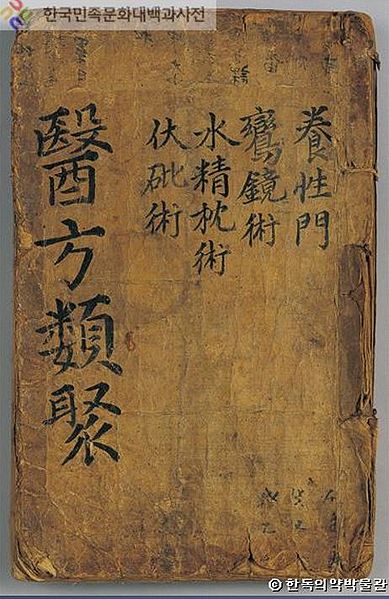 한국민족문화대백과사전
養性門
鸞鏡術
水精枕術
伏砒術
醫方類聚
© 한독의약박물관